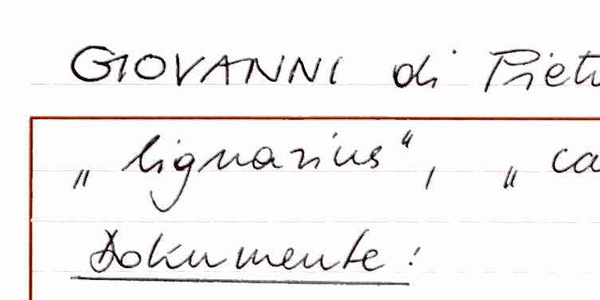 GIOVANNI di
„lignarius“, „
Dokumente: